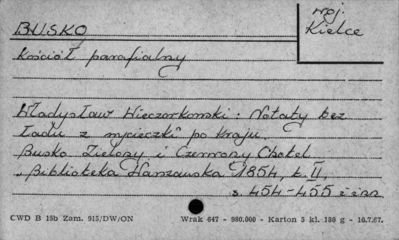 BUSKO
woj.
Kielce
Kościół parafialny
Władysław Wieczorkowski: Notaty bez
ładu z wycieczki po kraju.
Busko. Zielony i Czerwony Chotel
„Biblioteka Warszawska" 1854, t. II,
s. 454-455
CWD B 15b Zam. 915/DW/ON Wrak 647 - 980.000 - Karton 3 kl. 180 g - 10.7.67.